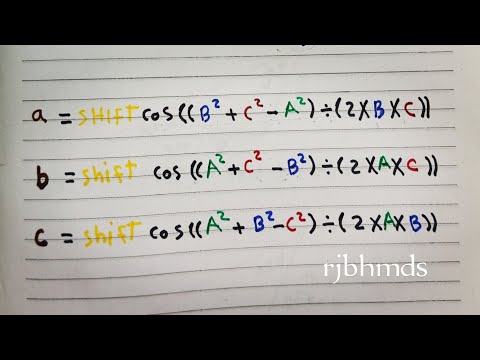 a = SHIFT cos((B² + C² - A²) ÷ (2 X B X C))
b = shift cos((A² + C² - B²) ÷ (2 X A X C))
c = shift cos((A² + B² - C²) ÷ (2 X A X B))
rjbhmds